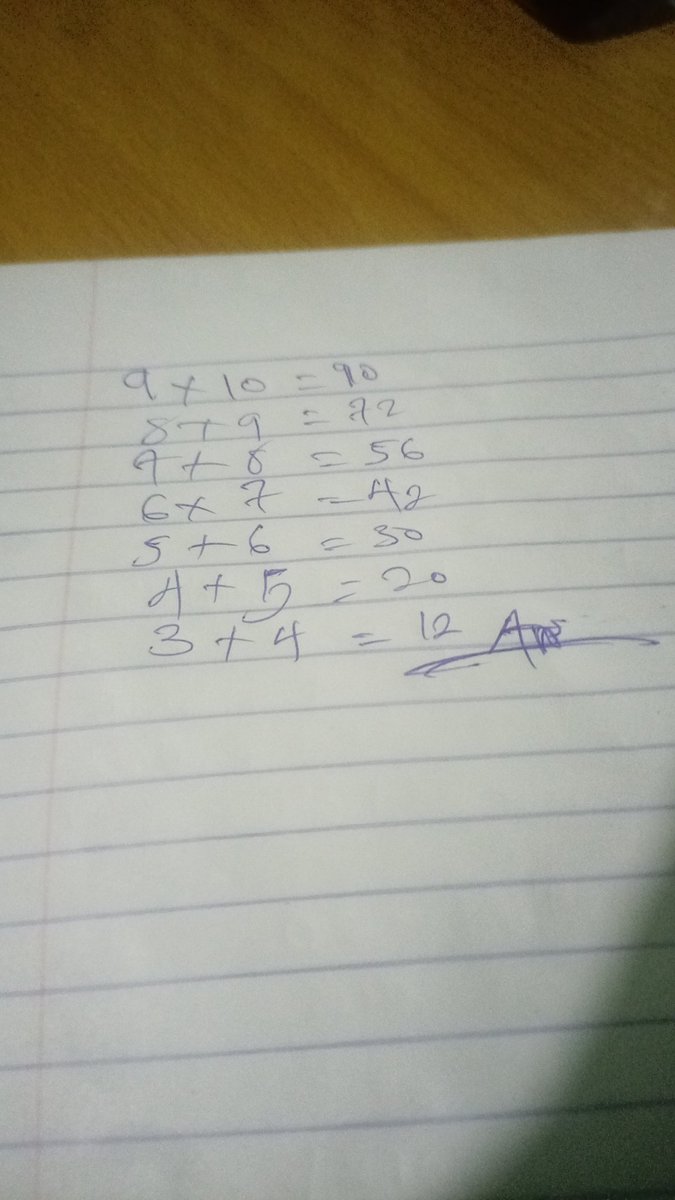 9 + 10 = 90
8 + 9 = 72
7 + 8 = 56
6 x 7 = 42
5 + 6 = 30
4 + 5 = 20
3 + 4 = 12 Ans